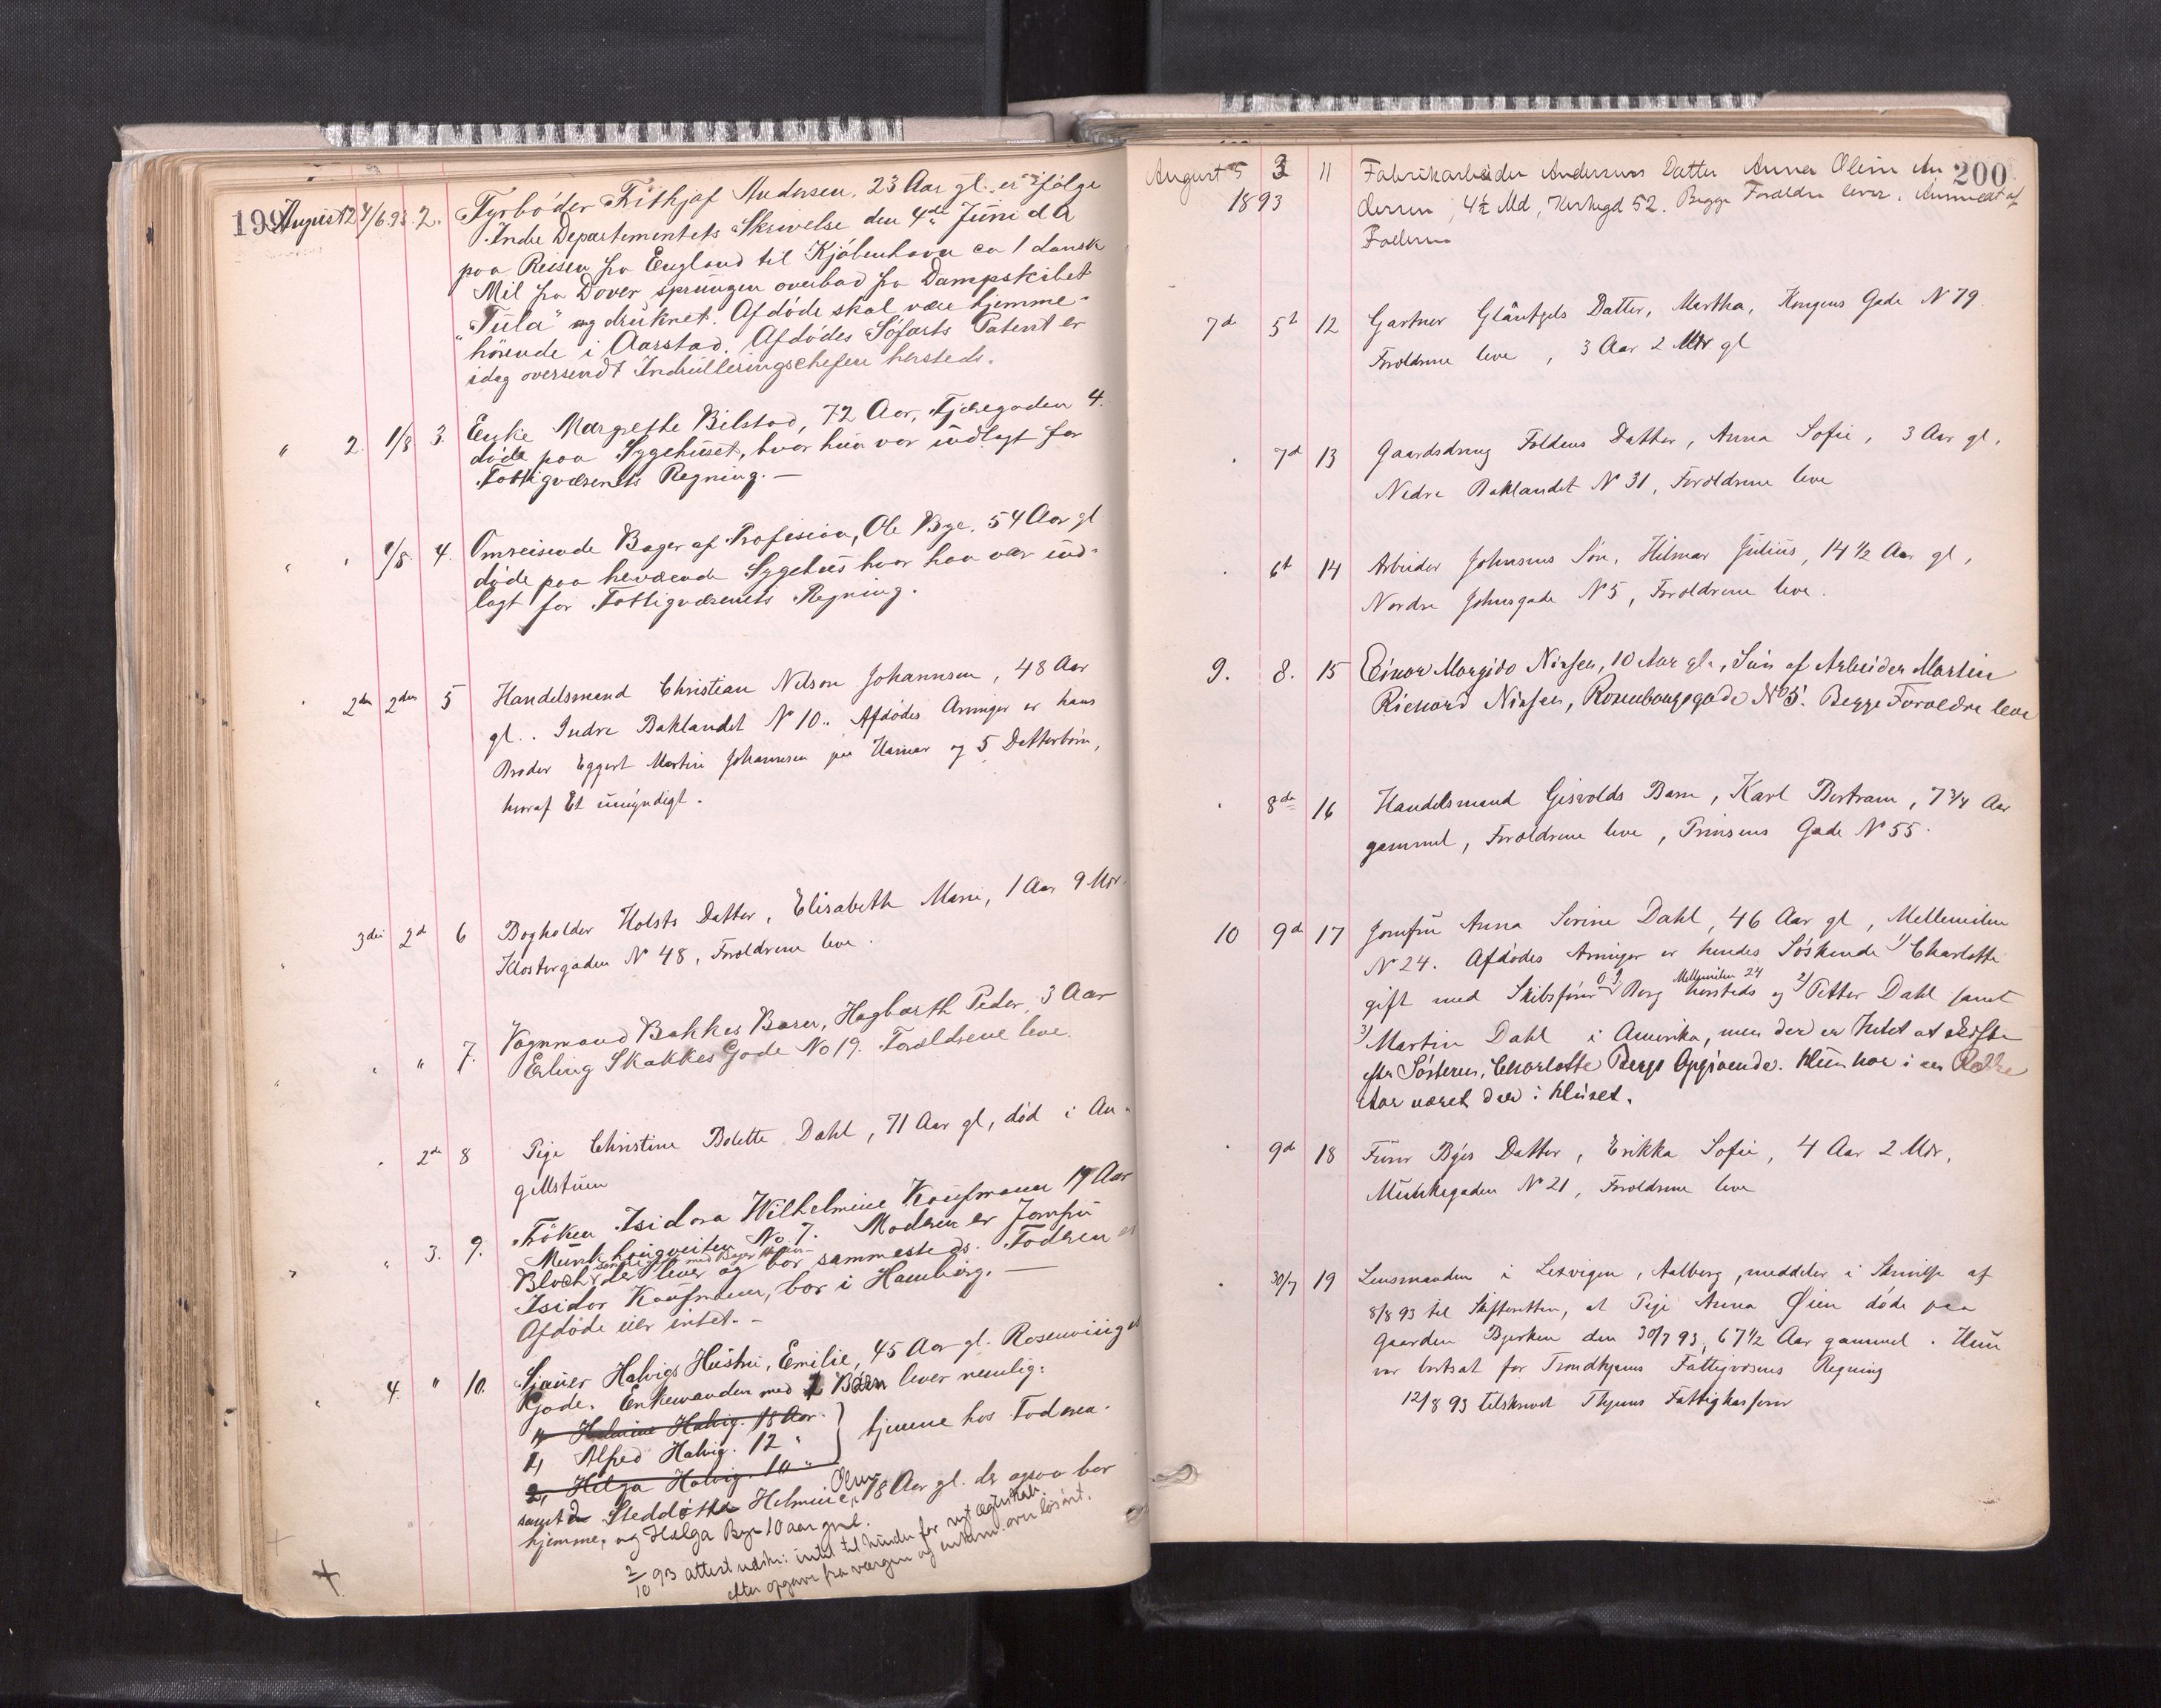 199
August 2 4/6.93. 2. Fyrböder Frithjof Andersen. 23 Aar gl. er ifølge
Indre Departementets Skrivelse den 4de Juni d A
paa Reisen fra England til Kjöbenhavn ca 1 dansk
Mil fra Dover sprungen overbord fra Dampskibet
"Tula" og druknet. Afdöde skal være hjemme-
hörende i Aarstad. Afdödes Söfarts Patent er
idag oversendt Indrulleringschefen hersteds.
" 2. 1/8 3. Enke Margrethe Bilstad, 72 Aar, Fjæregaden 4.
döde paa Sygehuset, hvor hun var indlagt for
Fattigvæsenets Regning. —
" " 1/8. 4. Omreisende Bager af Profesion, Ole Bye. 54 Aar gl
döde paa herværende Sygehus hvor han var ind-
lagt for Fattigvæsenets Regning.
" 2den 2den 5 Handelsmand Christian Nelson Johannsen, 48 Aar
gl.. Indre Baklandet N 10. Afdödes Arvinger er hans
Broder Eggert Martin Johannsen paa Hamar og 5 Datterbörn,
hvoraf Et umyndigt.
" 3die 2d 6 Bogholder Holsts Datter, Elisabeth Marie, 1 Aar 9 Mdr.
Klostergaden N 48, Forældrene leve.
" " " 7. Vognmand Bakkes Barn, Hagbarth Peder, 3 Aar
Erling Skakkes Gade No 19. Forældrene leve.
" 2de 8 Pige Christine Bolette Dahl, 71 Aar gl, död i An-
gellstuen
" " 3. 9. Fröken Isidora Wilhelmine Kaufmann 19 Aar
Munkhaugveiten No 7. Moderen er Jomfru
Bloch der lever og bor sammesteds. Faderen er
Isidor Kaufmann, bor i Hamburg. —
Afdöde eier intet. —
" 4. " 10. Sjauer Halvigs Hustru, Emilie, 45 Aar gl. Rosenvinges
Gade. Enkemanden med 1 Barn lever nemlig:
1, Helmine Halvig. 18 Aar.
1, Alfred Halvig. 12 " } hjemme hos Faderen.
2, Helga Halvig. 10 "
samt Steddatter Helmine Olsen, 18 Aar gl. der ogsaa bor
hjemme, og Helga Bye 10 aar gml.
2/10 93 attest udst: intet til hinder for nyt ægteskab.
efter opgave fra værgen og enkem. over lösört.
200
August 5 3 11 Fabrikarbeider Andersens Datter Anna Oline An
1893 dersen, 4½ Md, Kirkegd 52. Begge Forældre lever. Anmeldt af
Faderen
7de 5t 12 Gartner Gläntzels Datter, Martha, Kongens Gade N 79.
Forældrene leve, 3 Aar 2 Mdr gl
" 7d 13 Gaardsdreng Foldens Datter, Anna Sofie, 3 Aar gl,
Nedre Baklandet N 31, Forældrene leve
" 6t 14 Arbeider Johnsens Sön, Hilmar Julius, 14½ Aar gl,
Nordre Johnsgade N 5, Forældrene leve.
9. 8. 15 Einar Margido Nissen, 10 Aar gl., Sön af Arbeider Martin
Richard Nissen, Rosenborgsgade No 5. Begge Forældre leve
" 8de 16 Handelsmand Gisvolds Barn, Karl Bertram, 7¾ Aar
gammel, Forældrene leve, Prinsens Gade N 55.
10 9de 17 Jomfru Anna Serine Dahl, 46 Aar gl, Mellemilen
N 24. Afdödes Arvinger er hendes Söskende 1) Charlotte
gift med Skibsförer O. J. Berg Mellemilen 24 hersteds og 2) Petter Dahl samt
3) Martin Dahl i Amerika, men der er Intet at skifte
efter Söstren, Charlotte Bergs Opgivende. Hun har i en Række
Aar været der i Huset.
" 9de 18 Furer Byes Datter, Erikka Sofie, 4 Aar 2 Mdr,
Munkegaden N 21, Forældrene leve
" 30/7 19 Lensmanden i Lexvigen, Aalberg, meddeler i Skrivelse af
8/8 93 til Skifteretten, at Pige Anna Øien döde paa
Gaarden Bjerken den 30/7 93, 67½ Aar gammel. Hun
var bortsat for Trondhjems Fattigvæsens Regning
12/8 93 tilskrevet Thjems Fattigkasserer